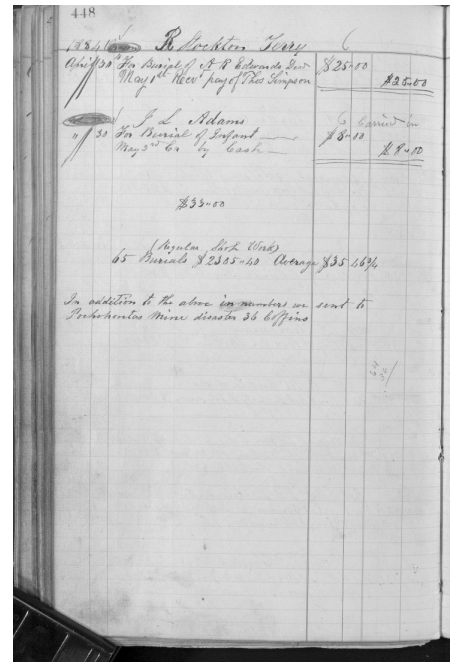 448
1884 R Stockton Terry
April 30 For Burial of A R Edwards Decd $25-00
May 1st Recd pay of Thos Simpson $25-00
J L Adams
" 30 For Burial of Infant $8-00 Carried in
May 3rd Cr by Cash $8-00
$33-00
(Regular Shop Work)
65 Burials $2305-40 Average $35 46¾
In addition to the above in number we sent to
Pochohontas Mine disaster 36 Coffins